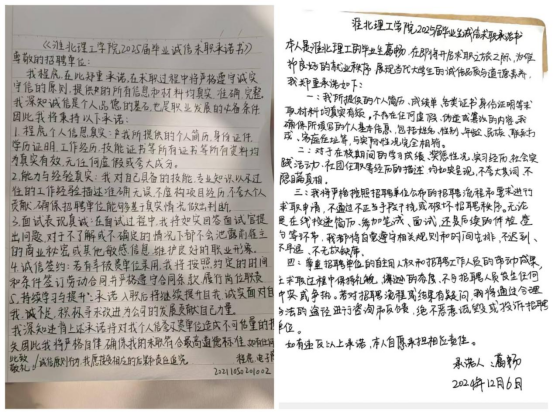 《淮北理工学院2025届毕业诚信求职承诺书》
尊敬的招聘单位:
我程展在此郑重承诺,在求职过程中将严格遵守诚实
守信的原则,提供的所有信息和材料均真实、准确、完整。
我深知诚信是个人品德的基石,也是职业发展的必备条件
因此我将秉持以下承诺:
1.程展个人信息真实:我所提供的个人简历,身份证件,
学历证明,工作经历,技能证书等所有证书等所有资料均
力真实有效,无任何虚假或夸大成分。
2.能力与经验真实:我对自己具备的技能,专业知识以及过
往的工作经验描述准确无误不虚构项目经历,不夸大个人
贡献,确保招聘单位能够基于真实情况做出判断。
3.面试表现真诚:在面试过程中,我将如实回答面试官提
出问题,对于不了解或不确定的情况下都不会泄露前雇主
的商业秘密或其他敏感信息,维护良好的职业形象。
4.诚信签约:若有幸被贵单位录用,我将按照约定的时间
和条件签订劳动合同,严格遵守合同条款,履行岗位职责
5.持续学习与提升:承诺入职后将继续提升自我,诚实面对自
我,诚信,积极寻求改进为公司的发展贡献自己力量。
我深知违背上述承诺将对我个人信誉及贵单位造成不可估量的损
失因此我将严格自律,确保我的求职符合最高道德标准,如有任何
此致
敬礼!
20211050201002
淮北理工学院2025届毕业生诚信求职承诺书
本人是淮北理工的毕业生葛畅,在即将开启求职之旅之际,为维
护良好的就业秩序,展现当代大学生的诚信品貌与道德素养,
我郑重承诺如下:
一:我所提供的个人简历,成绩单,各类证书,身份证明等求
职材料均真实有效,不存在任何虚假、伪造或篡改的内容,我
确保所填写的个人基本信息,包括姓名,性别,年龄,民族,联系方
式,家庭住址等,与实际情况完全相符。
二:对于在校期间的学习成绩,奖惩情况,实习经历,社会实
践活动,在团任职等经历的描述,均如实呈现,不夸大事实,不
隐瞒真相。
三:我将严格按照招聘单位公布的招聘流程和要求进行
求职申请,不通过不正当手段干扰或破坏招聘秩序。无论
是在线投递简历,参加笔试、面试,还是后续的体检、签
约等环节,我都将自觉遵守相关规则和时间安排,不迟到、
不早退、不无故缺席。
四:尊重招聘单位的自主用人权和招聘工作人员的劳动成果,
在求职过程中保持礼貌,谦逊的态度,不与招聘人员发生任何
冲突或争执。若对招聘流程或结果有疑问,我将通过合理
合法的途径进行咨询和反馈,绝不恶意诋毁或投诉招聘
单位。
如有违反以上承诺,本人自愿承担相应责任。
承诺人:葛畅
2024年12月6日